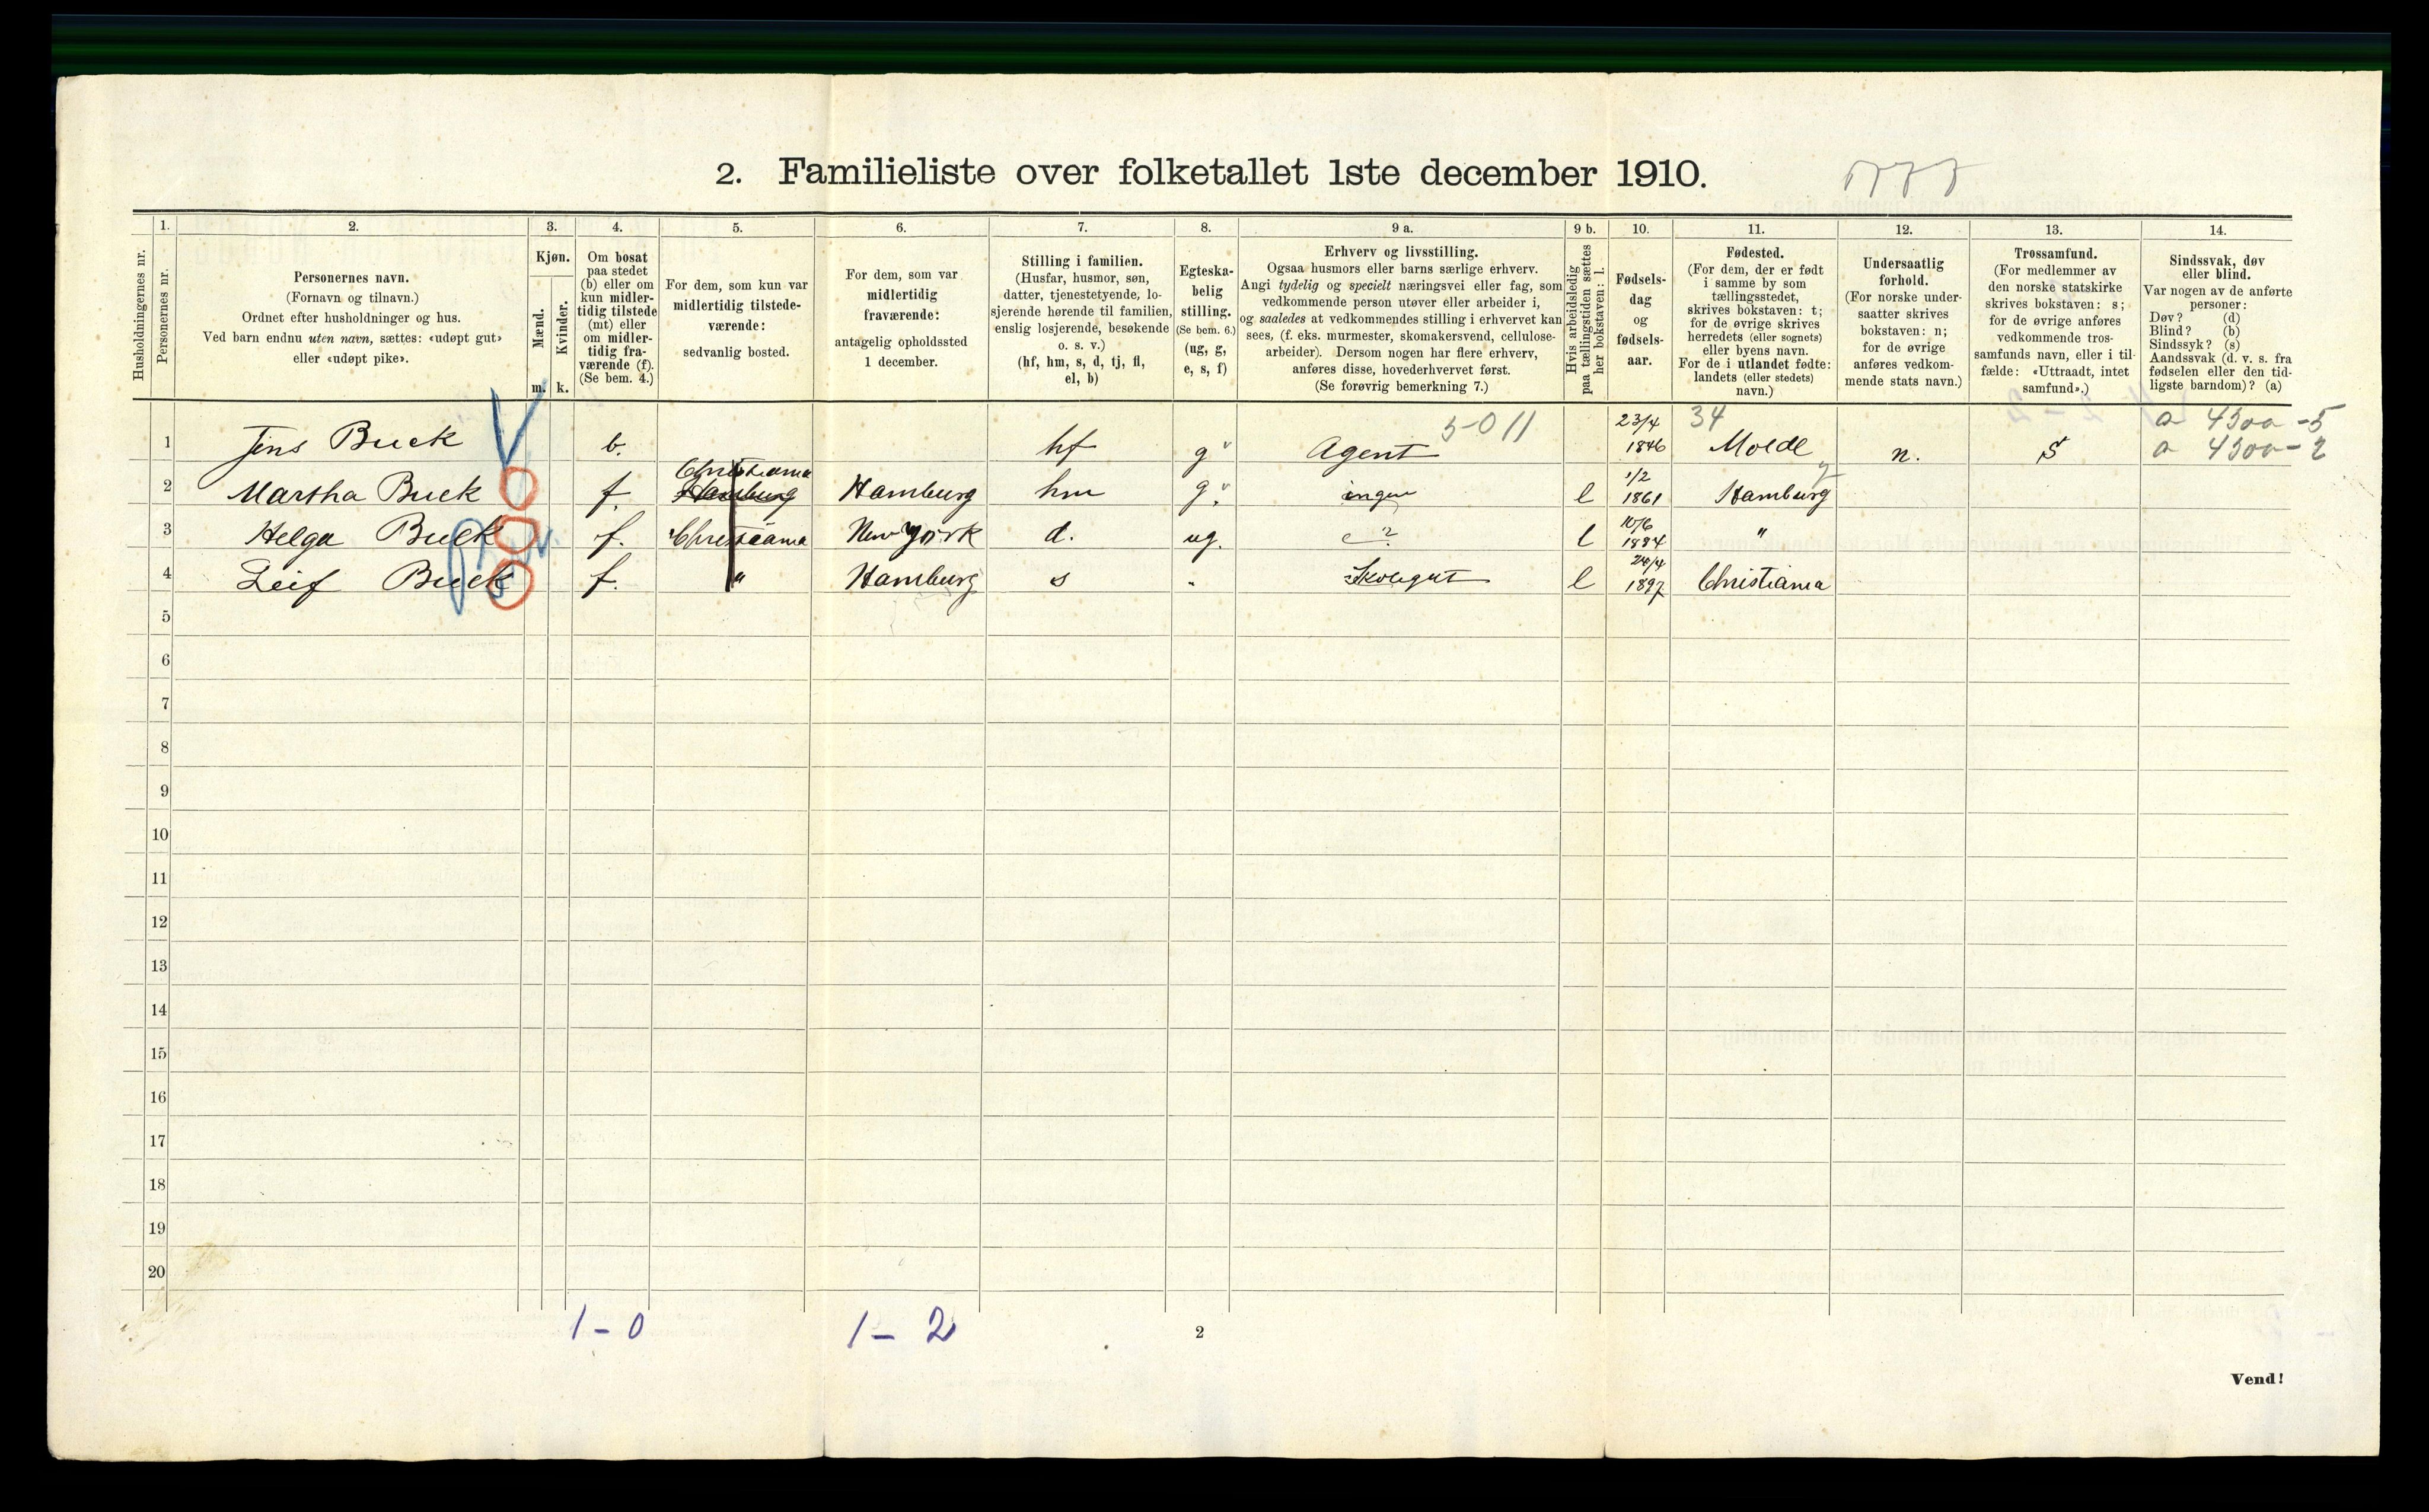 2. Familieliste over folketallet 1ste december 1910.
Husholdningernes nr.
1.
Personernes nr.
2.
Personernes navn.
(Fornavn og tilnavn.)
Ordnet efter husholdninger og hus.
Ved barn endnu uten navn, sættes: «udøpt gut»
eller «udøpt pike».
3.
Kjøn.
Mænd.
m.
Kvinder.
k.
4.
Om bosat
paa stedet
(b) eller om
kun midler-
tidig tilstede
(mt) eller
om midler-
tidig fra-
værende (f).
(Se bem. 4.)
5.
For dem, som kun var
midlertidig tilstede-
værende:
sedvanlig bosted.
6.
For dem, som var
midlertidig
fraværende:
antagelig opholdssted
1 december.
7.
Stilling i familien.
(Husfar, husmor, søn,
datter, tjenestetyende, lo-
sjerende hørende til familien,
enslig losjerende, besøkende
o. s. v.)
(hf, hm, s, d, tj, fl,
el, b)
8.
Egteska-
belig
stilling.
(Se bem. 6.)
(ug, g,
e, s, f)
9 a.
Erhverv og livsstilling.
Ogsaa husmors eller barns særlige erhverv.
Angi tydelig og specielt næringsvei eller fag, som
vedkommende person utøver eller arbeider i,
og saaledes at vedkommendes stilling i erhvervet kan
sees, (f. eks. murmester, skomakersvend, cellulose-
arbeider). Dersom nogen har flere erhverv,
anføres disse, hovederhvervet først.
(Se forøvrig bemerkning 7.)
9 b.
Hvis arbeidsledig
paa tællingstiden sættes
her bokstaven: l.
10.
Fødsels-
dag
og
fødsels-
aar.
11.
Fødested.
(For dem, der er født
i samme by som
tællingsstedet,
skrives bokstaven: t;
for de øvrige skrives
herredets (eller sognets)
eller byens navn.
For de i utlandet fødte:
landets (eller stedets)
navn.)
12.
Undersaatlig
forhold.
(For norske under-
saatter skrives
bokstaven: n;
for de øvrige
anføres vedkom-
mende stats navn.)
13.
Trossamfund.
(For medlemmer av
den norske statskirke
skrives bokstaven: s;
for de øvrige anføres
vedkommende tros-
samfunds navn, eller i til-
fælde: «Uttraadt, intet
samfund».)
14.
Sindssvak, døv
eller blind.
Var nogen av de anførte
personer:
Døv? (d)
Blind? (b)
Sindssyk? (s)
Aandssvak (d. v. s. fra
fødselen eller den tid-
ligste barndom)? (a)
5-011 23/4 34 a 4500-5
1 Jens Buck b. hf g Agent 1846 Molde n. S a 4300-2
Christiania 1/2
2 Martha Buck f. Hamburg Hamburg hm g. ingen l 1861 Hamburg
10/6
3 Helga Buck f. Christiania New York d. ug. l 1884 "
24/4
4 Leif Buck f. " Hamburg s " Skolegut l 1897 Christiania
5
6
7
8
9
10
11
12
13
14
15
16
17
18
19
20
1-0 1-2 2
Vend!